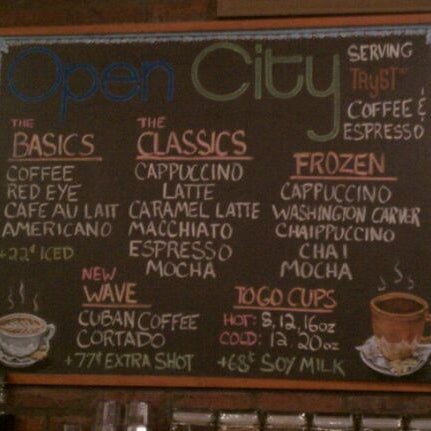 Open City
SERVING
TRYST
COFFEE &
ESPRESSO
THE
BASICS
COFFEE
RED EYE
CAFE AU LAIT
AMERICANO
+22¢ ICED
THE
CLASSICS
CAPPUCCINO
LATTE
CARAMEL LATTE
MACCHIATO
ESPRESSO
MOCHA
FROZEN
CAPPUCCINO
WASHINGTON CARVER
CHAIPPUCCINO
CHAI
MOCHA
NEW
WAVE
CUBAN COFFEE
CORTADO
+77¢ EXTRA SHOT
TO GO CUPS
HOT: 8, 12, 16oz
COLD: 12, 20oz
+68¢ SOY MILK